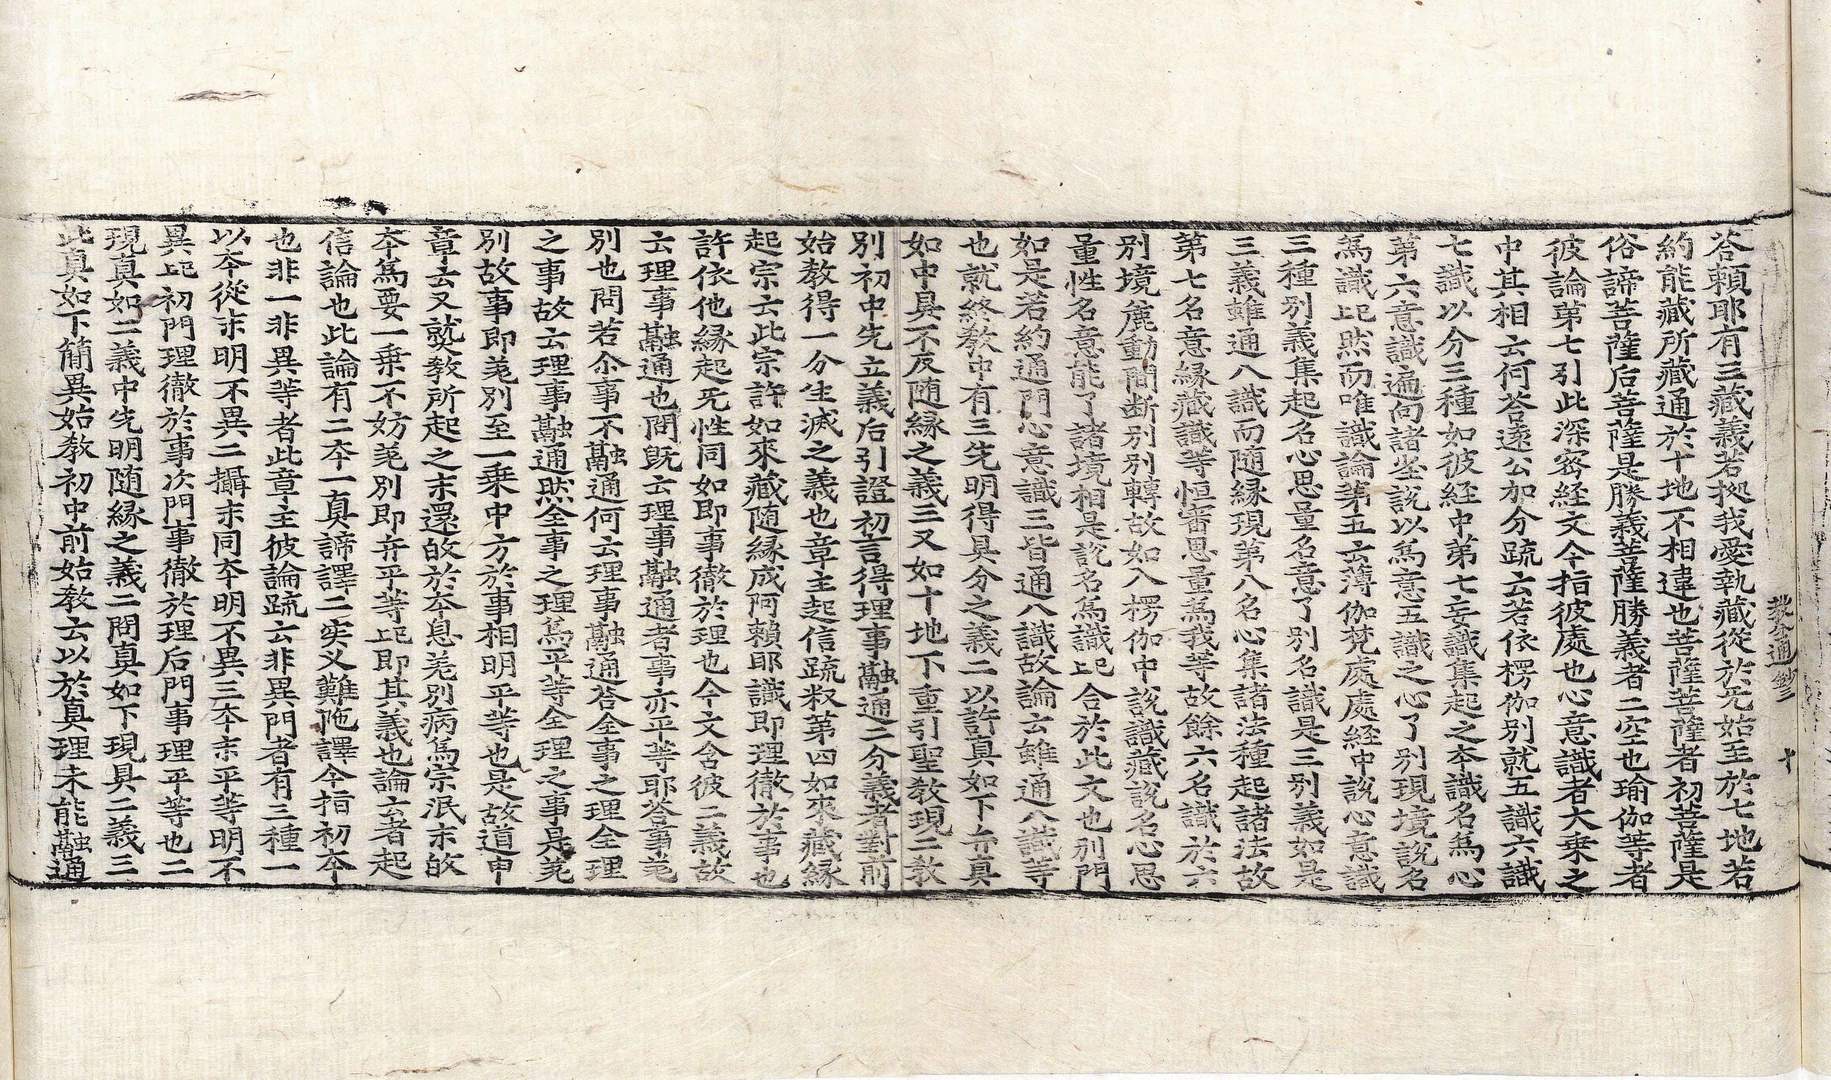 答頼耶有三藏義若拠我愛執藏從於无始至於七地若
約能藏所藏通於十地不相違也菩薩菩薩者初菩薩是
俗諦菩薩后菩薩是勝義菩薩勝義者二空也瑜伽等者
彼論第七引此深密経文今指彼處也心意識者大乗之
中其相云何荅遠公加分疏云若依楞伽別就五識六識
七識以分三種如彼経中第七妄識集起之本識名爲心
第六意識遍向諸塵說以爲意五識之心了別現境說名
爲識此然而唯識論第五云薄伽梵處處経中說心意識
三種別義集起名心思量名意了別名識是三別義如是
三義雖通八識而随縁現第八名心集諸法種起諸法故
第七名意縁藏識等恒審思量爲我等故餘六名識於六
別境麁動間断別別轉故如入楞伽中說識藏說名心思
量性名意能了諸境相是說名爲識此合於此文也別門
如是若約通門心意識三皆通八識故論云雖通八識等
也就終教中有三先明得具分之義二以許真如下弁真
如中具不反随縁之義三又如十地下重引聖教現二教
別初中先立義后引證初言得理事融通二分義者對前
始教得一分生滅之義也章主起信疏叙第四如來藏縁
起宗云此宗許如來藏随縁成阿賴耶識即理徹於事也
許依他縁起无性同如即事徹於理也今文含彼二義故
云理事融通也問既云理事融通者事亦平等耶荅事㐬
別也問若尒事不融通何云理事融通荅全事之理全理
之事故云理事融通然全事之理爲平等全理之事是㐬
別故事即㐬別至一乗中方於事相明平等也是故道申
章云又就教所起之末還的於本息㐬別病爲宗泯末的
本爲要一乗不妨㐬別即弁平等此即其義也論云者起
信論也此論有二本一真諦譯二实叉難陁譯今指初本
也非一非異等者此章主彼論疏云非異門者有三種一
以本從末明不異二攝末同本明不異三本末平等明不
異此初門理徹於事次門事徹於理后門事理平等也二
現真如二義中先明随縁之義二問真如下現具二義三
此真如下簡異始教初中前始教云以於真理未能融通
教分通鈔三 十